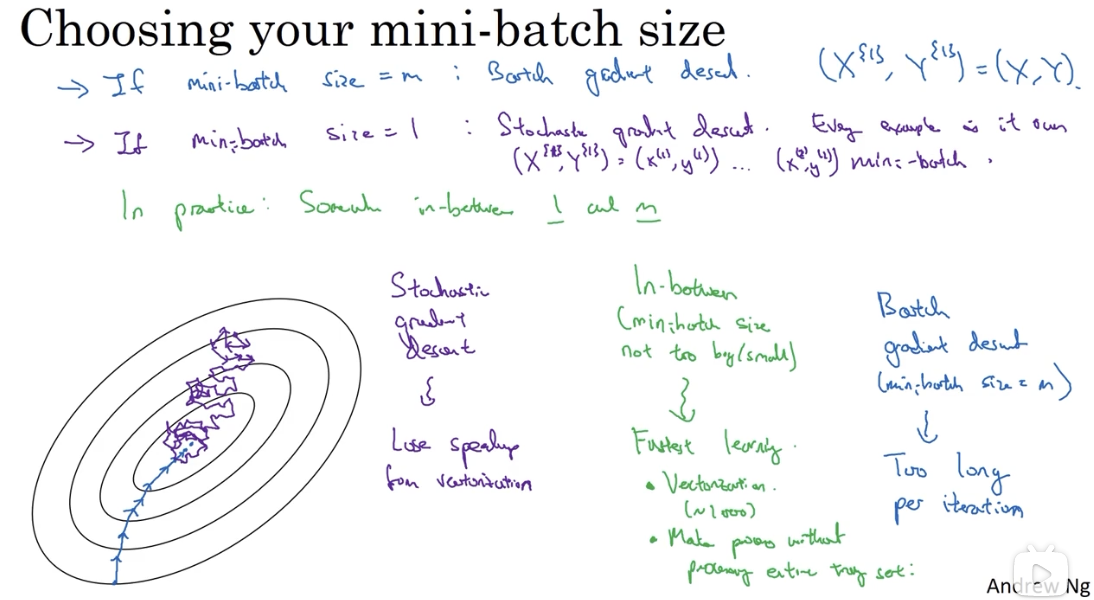 Choosing your mini-batch size
→ If mini-batch size = m : Batch gradient descent. (X^{1}, Y^{1}) = (X, Y).
→ If mini-batch size = 1 : Stochastic gradient descent. Every example is it own
(X^{1}, Y^{1}) = (x^(1), y^(1)) ... (x^(2), y^(2)) mini-batch.
In practice: Somewhere in-between 1 and m
Stochastic
gradient
descent
Lose speedup
from vectorization
In-between
(mini-batch size
not too big/small)
Fastest learning.
• Vectorization.
(~1000)
• Make progress without
processing entire training set.
Batch
gradient descent
(mini-batch size = m)
↓
Too long
per iteration
Andrew Ng